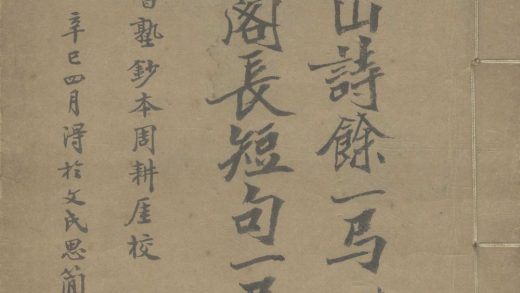 山詩餘一弓
閣長短句一弓
塾鈔本周耕厓校
辛巳四月得於文氏思簡